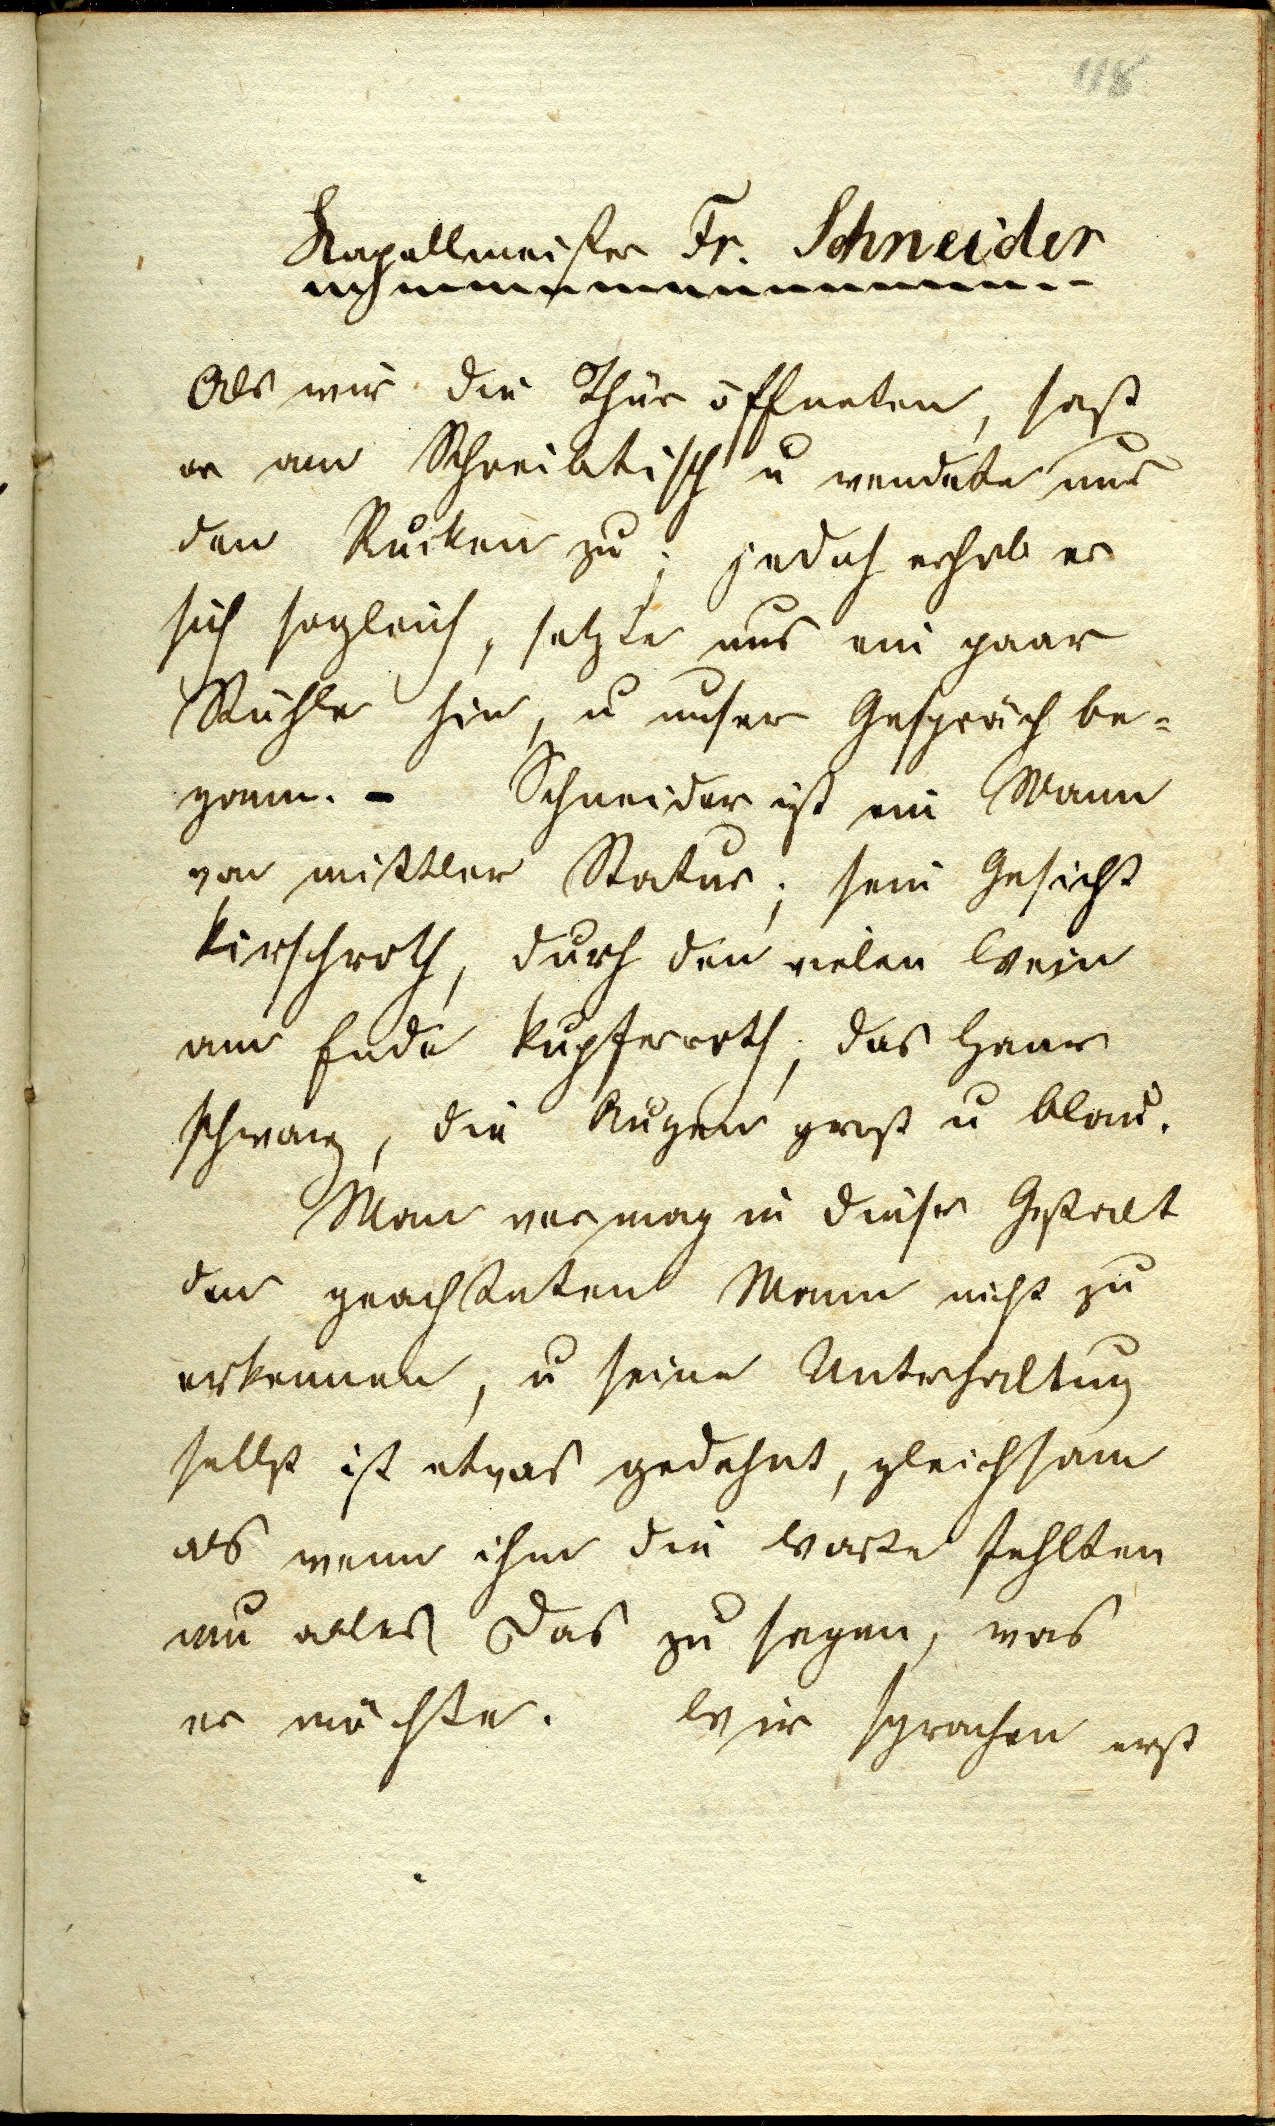 118
Kapellmeister Fr. Schneider
Als wir die Thür öffneten, saß
er am Schreibtisch u wendete uns
den Rücken zu; jedoch erhob er
sich sogleich, setzte uns ein paar
Stühle hin, u unser Gespräch be-
gann. - Schneider ist ein Mann
von mittler Statur; sein Gesicht
kirschroth, durch den vielen Wein
am Ende kupferroth; das Haar
schwarz, die Augen groß u blau.
Man vermag in dieser Gestalt
den geachteten Mann nicht zu
erkennen, u seine Unterhaltung
selbst ist etwas gedehnt, gleichsam
als wenn ihm die Worte fehlten
um alles Das zu sagen, was
er möchte. Wir sprachen erst